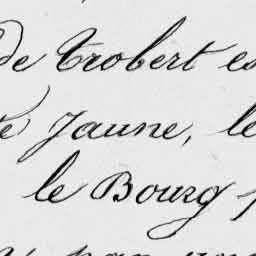 de Trobert es
Jaune, le
le Bourg